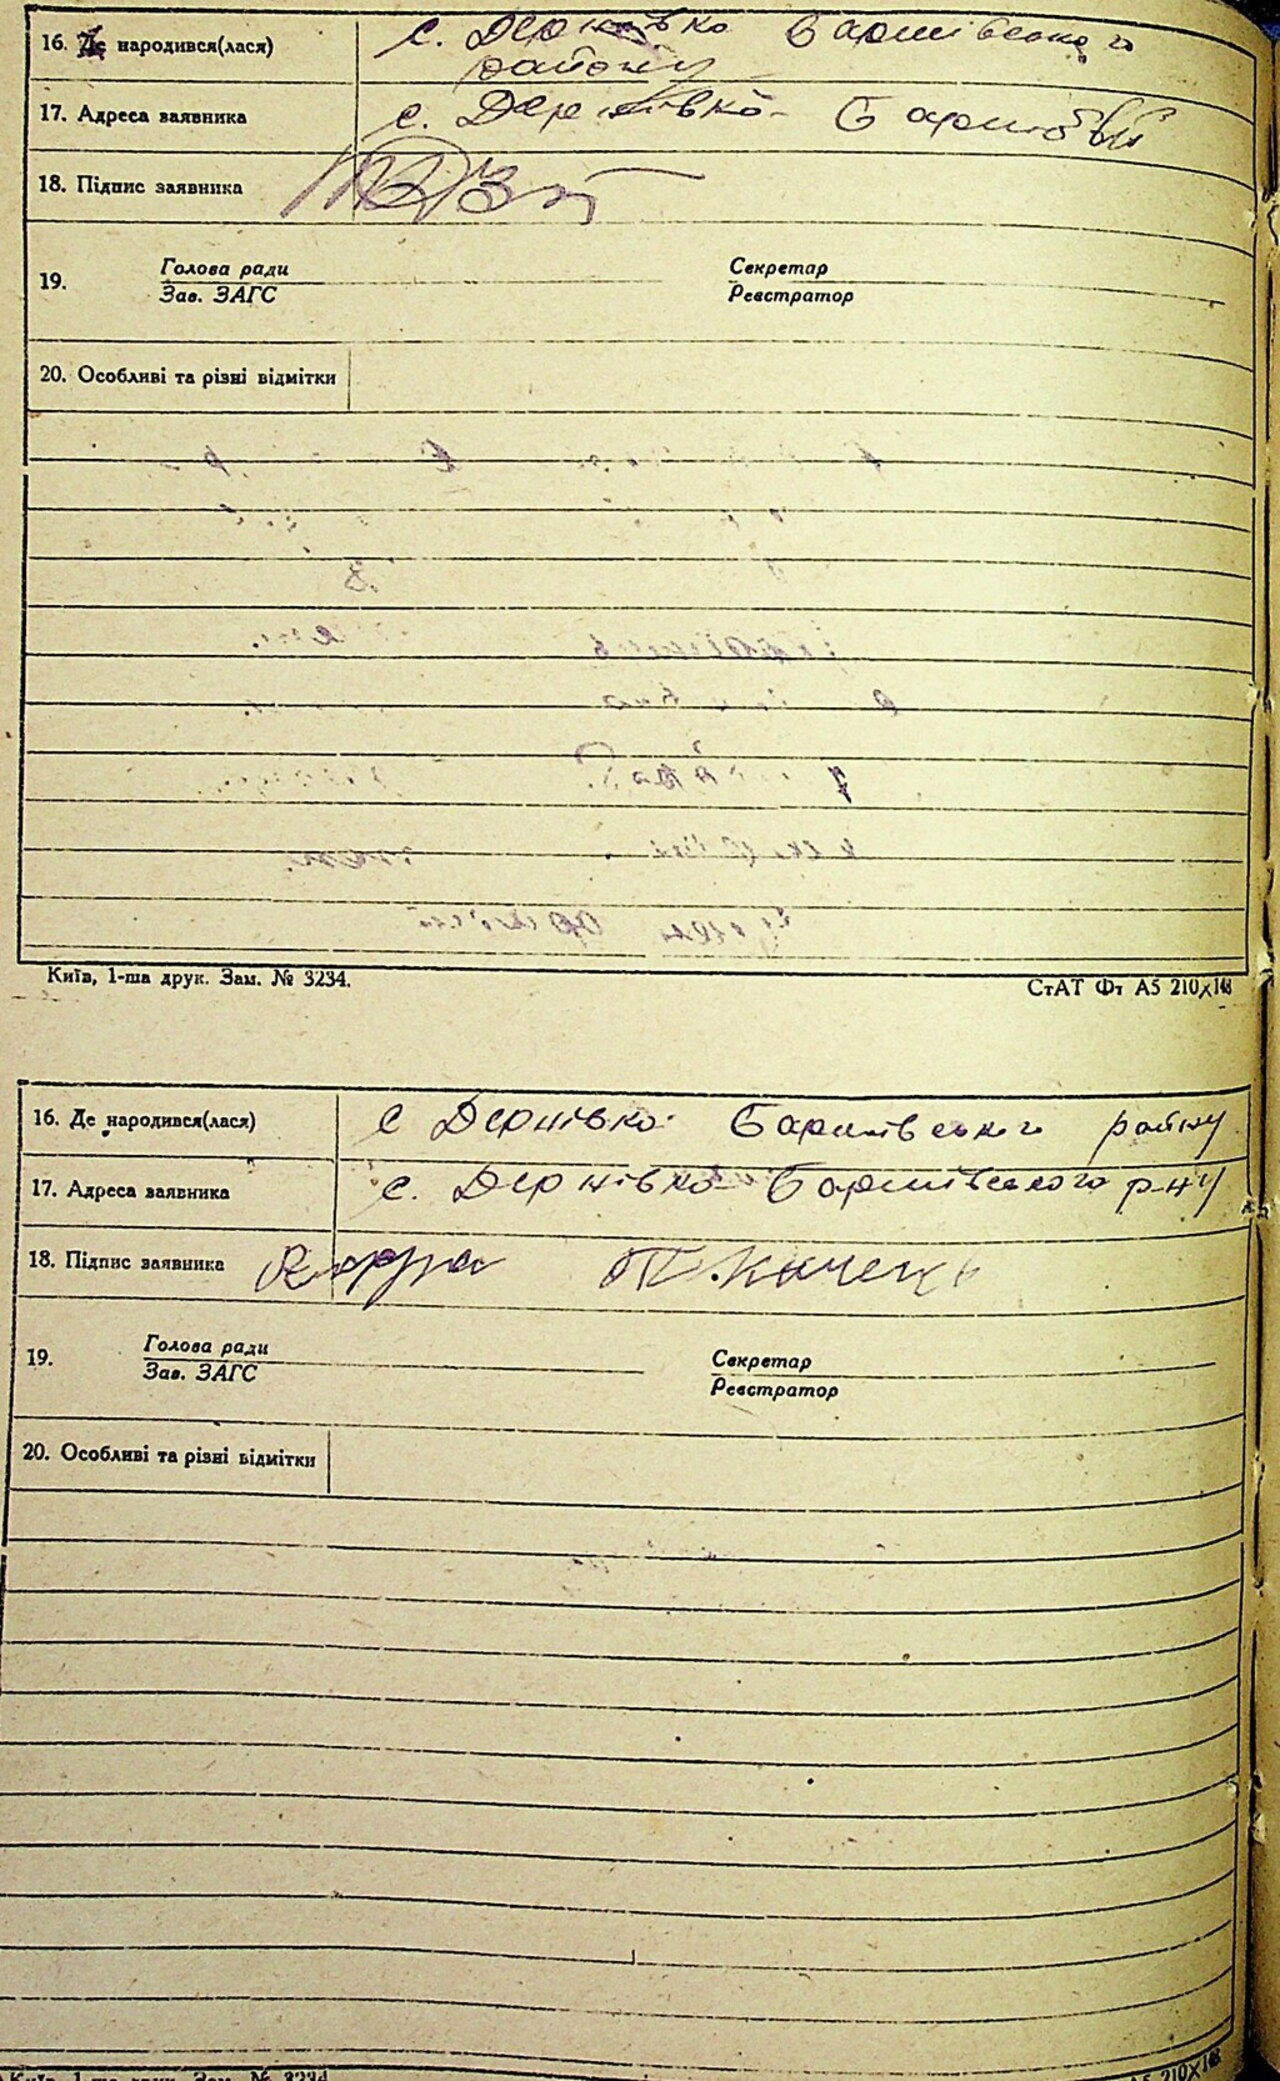 16. Де народився(лася) с. Дернівка Баришівського
району
17. Адреса заявника с. Дернівка Баришівсь
18. Підпис заявника
19. Голова ради Секретар
Зав. ЗАГС Реєстратор
20. Особливі та різні відмітки
Київ, 1-ша друк. Зам. № 3234. СтАТ Фт А5 210×148
16. Де народився(лася) с Дернівка Баришівського району
17. Адреса заявника с. Дернівка Баришівського р-ну
18. Підпис заявника
19. Голова ради Секретар
Зав. ЗАГС Реєстратор
20. Особливі та різні відмітки
Київ, 1-ша друк. Зам. № 3234 А5 210×148